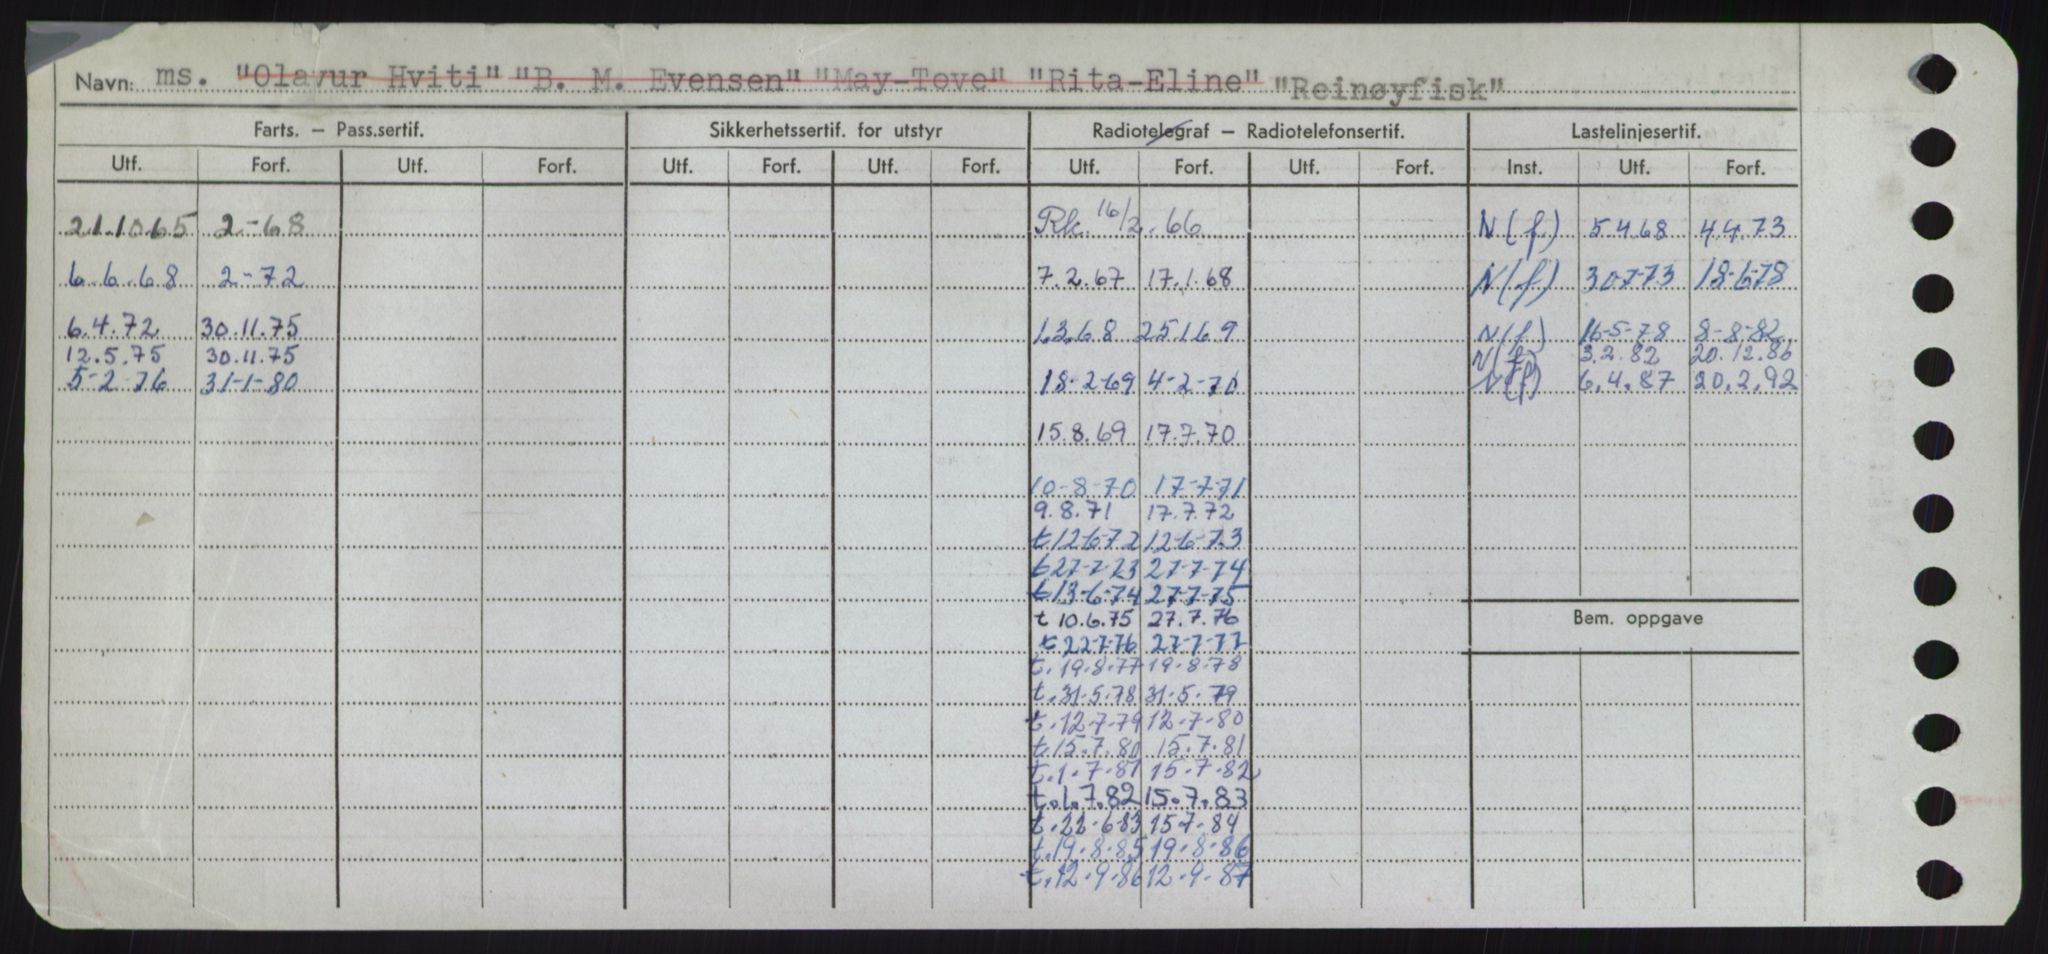 Navn: ms. "Olavur Hviti" "B. M. Evensen" "May-Tove" "Rita-Eline" "Reinøyfisk"
Farts. – Pass.sertif. Sikkerhetssertif. for utstyr Radiotelegraf – Radiotelefonsertif. Lastelinjesertif.
Utf. Forf. Utf. Forf. Utf. Forf. Utf. Forf. Utf. Forf. Utf. Forf. Inst. Utf. Forf.
21.10.65 2-68 Rk. 16/2.66 N(f) 5468 4.4.73
6.6.68 2-72 7.2.67 17.1.68 N(f) 30-7-73 18-6-78
6.4.72 30.11.75 1.3.68 25.1.69 N(f) 16-5-78 8-8-82
12.5.75 30.11.75 N(f) 3.2.82 20.12.86
5-2-76 31-1-80 18-2-69 4-2-70 N(f) 6.4.87 20.2.92
15.8.69 17.7.70
10-8-70 17-7-71
9.8.71 17.7.72
t 12-6-72 12-6-73
t 27-7-73 27-7-74
t 13-6-74 27-7-75
t 10.6.75 27.7.76
t 22-7-76 27-7-77
t. 19.8.77 19.8.78
t. 31.5.78 31.5.79
t. 12-7-79 12-7-80
t. 15.7.80 15.7.81
t. 1.7.81 15.7.82
t. 1.7.82 15.7.83
t. 22-6-83 15-7-84
t. 19.8.85 19.8.86
t. 12.9.86 12.9.87
Bem. oppgave